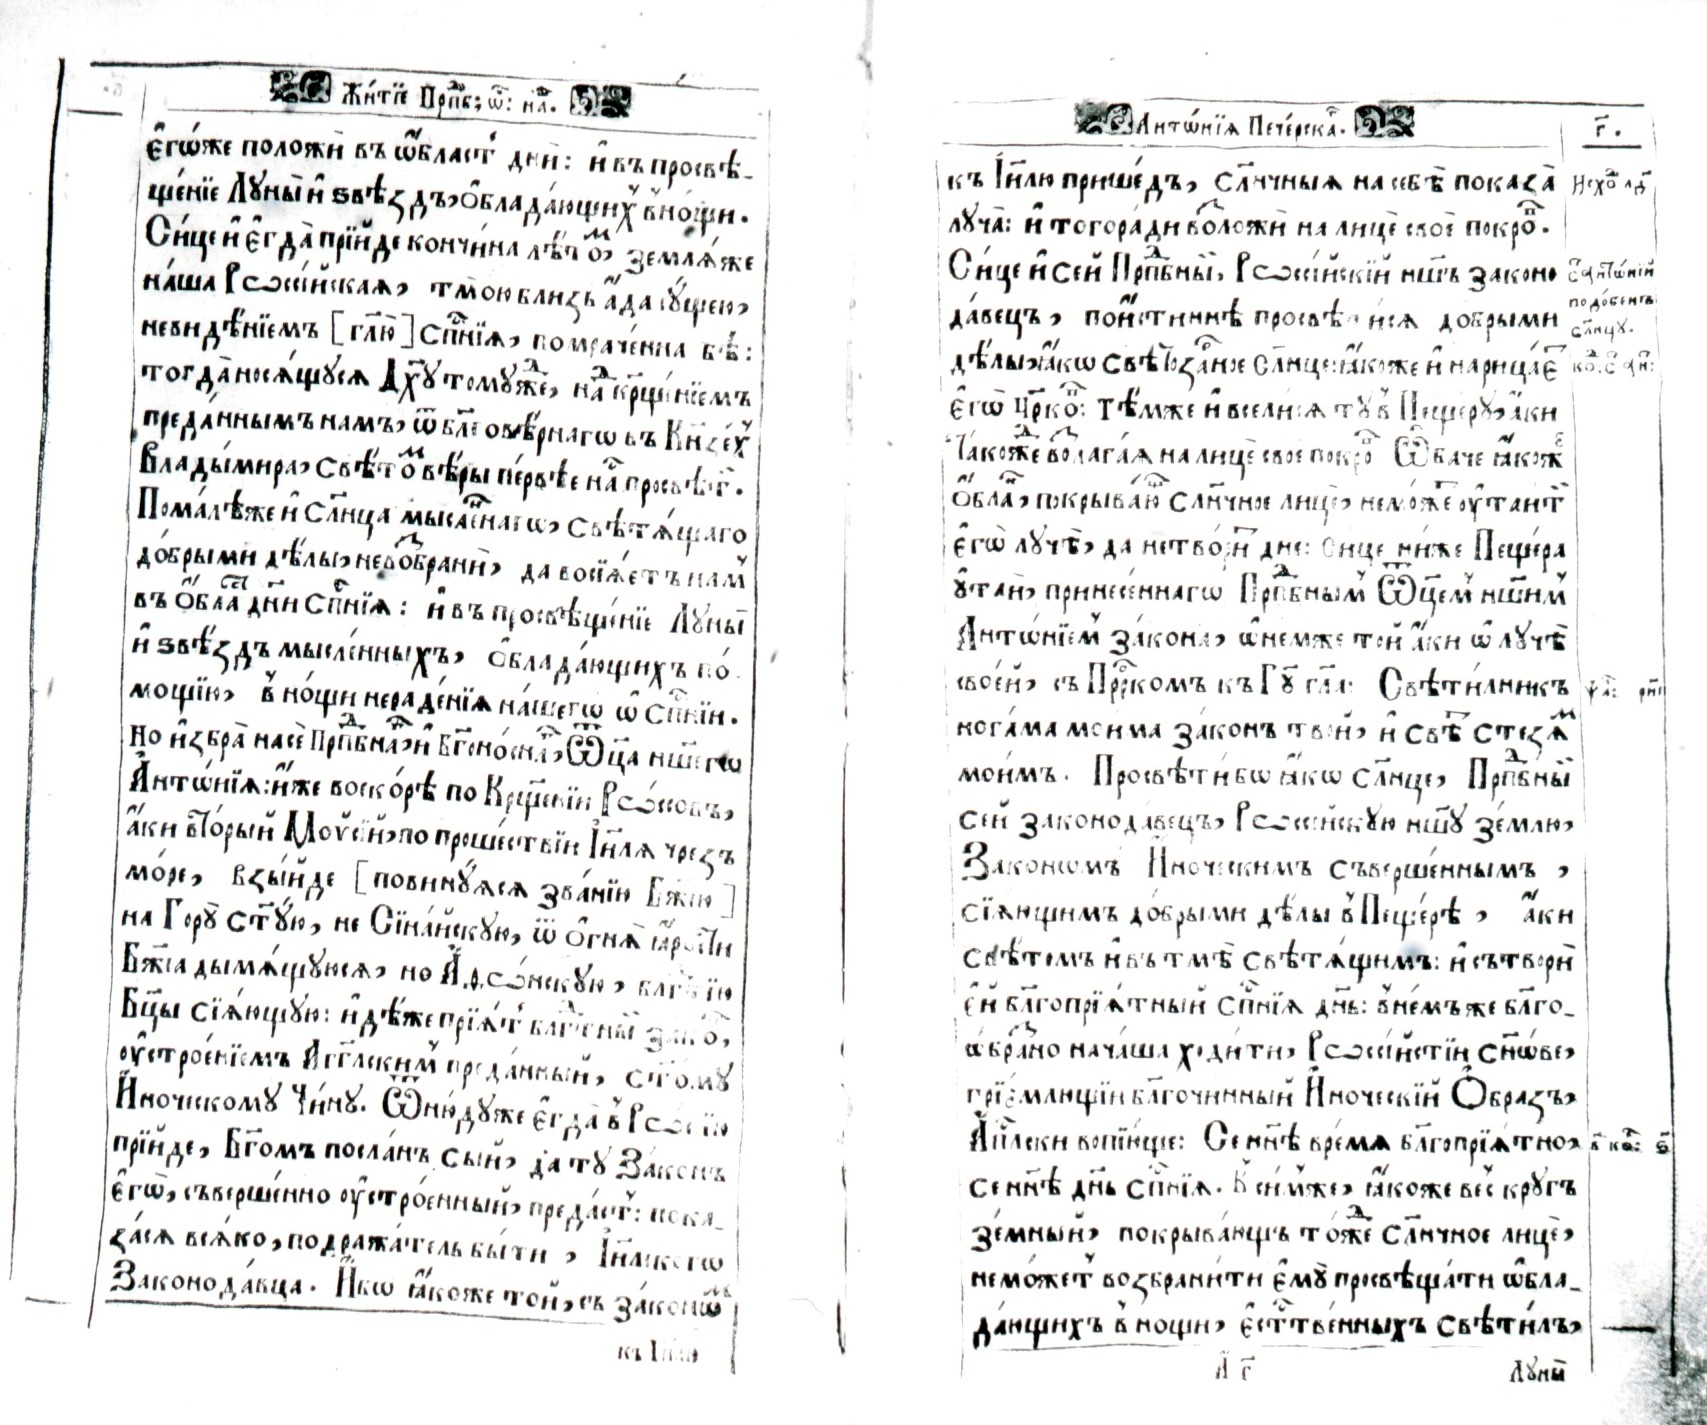 Житїе Прпⷣб: ѿ: нⷲа.
є҆гѡ́же положѝ въ ѡ҆́бластⸯ днѝ: и҆ въ просвѣ-
ще́нїе Лꙋны̀ и҆ ѕвѣ́здъ, ѻ҆блада́ющихⸯ в̾но́щи.
Си́це и҆ є҆гда̀ прїи́де кончи́на лѣтоⷨ, землѧ́ же
на́ша Рѡссі́йскаѧ, тмо́ю близъ а҆́да сꙋ́щею,
невидѣ́нїемъ [гл҃ю] сп҃нїѧ, помраче́нна бѣ̀:
тогда̀ носѧ́щꙋсѧ Дх҃ꙋ томꙋⷤде, наⷣ кр҃ще́нїемъ
преда́ннымъ намъ, ѿ бл҃говѣ́рнагѡ въ Кн҃зе́хⸯ
Влады́мира, свѣ́тоⷨ вѣ́ры пе́рвѣе наⷭ просвѣтⷭ.
Пома́лѣже и҆ сл҃нца мы́сленнагѡ, свѣтѧ́щаго
до́брыми дѣ́лы, невозбранѝ, да восїѧ́етъ намⸯ
въ ѻ҆́блаⷭ дн҃и сп҃нїѧ: и҆ въ просвѣще́нїе Лꙋны̀
и҆ ѕвѣ́здъ мы́сленныхъ, ѻ҆блада́ющихъ по́
мощїю, в̾ но́щи нераде́нїѧ на́шегѡ ѡ҆ сп҃нїи.
Но и҆збра̀ насѐ Прпⷣбнаⷢ, и҆ Бг҃оно́снаⷢ, Ѿца̀ нш҃егѡ
А҆нтѡ́нїѧ: и҆́же воско́рѣ по Крⷳщенїи Рѡ́ссовъ,
а҆́ки вто́рый Мѡѷсі́й, по проше́ствїи І҆и҃лѧ чрезъ
мо́ре, взы́йде [повинꙋ́ѧсѧ зва́нїю Бж҃їю]
на Горꙋ̀ ст҃ꙋ́ю, не Сїна́йскꙋю, ѿ ѻ҆гнѧ̀ ꙗ҆́рости
Бж҃їа дымѧ́щꙋюсѧ, но А҆ѳѡ́нскꙋю, блгⷣтїю
Бц҃ы сїѧ́ющꙋю: и҆дѣ́же прїѧ́тⸯ блгⷣтный зако́ⷩ,
ᲂу҆строе́нїемъ Агг҃лскимⸯ преда́нный, ст҃о́мꙋ
И҆́ноческомꙋ Чи́нꙋ. Ѿню́дꙋже є҆гда̀ в̾ Рѡссі́ю
прїи́де, Бг҃омъ посла́нъ сы́й, да тꙋ Зако́нъ
є҆гѡ̀, съверше́нно ᲂу҆стро́енный, преда́стⸯ: пока-
за́сѧ всѧ́ко, подража́тель бы́ти, І҆и҃лскогѡ
Законода́вца. И҆́бѡ ꙗ҆́коже то́й, съ зако́ноⷨ
къ І҆и҃лю
А҆нтѡ́нїѧ Пече́рскаⷢ. г҃.
къ І҆и҃лю прише́дъ, сл҃нчныѧ на себѣ̀ показа̀
лꙋча̀: и҆ тогора́ди возложѝ на лицѐ своѐ покроⷡ.
Си́це и҆ сей Прпⷣбный, Рѡссі́йскїй нш҃ъ законо
да́вецъ, пои́стиннѣ просвѣ́ нсѧ до́брыми
дѣ́лы, ꙗ҆́кѡ свѣтоза́рное сл҃нце: ꙗ҆́коже и҆ нарица́еⷮ
є҆гѡ̀ цр҃коⷡ: тѣ́мже и҆ всели́сѧ тꙋ в̾ Пеще́рꙋ, а҆́ки
ꙗ҆́коⷤде возлага́ѧ на лицѐ своѐ покро́ⷡ. Ѻ҆ба́че ꙗ҆́кожⷷ
ѻ҆́блаⷦ, покрыва́ю сл҃нчное лицѐ, немо́жеⷮ ᲂу҆таи́тⸯ
є҆гѡ̀ лꙋчѣ̀, да нетво́ри дне: Си́це ни́же Пеще́ра
ᲂу҆таѝ, принесе́ннагѡ Прпⷣбнымⸯ Ѿц҃емⸯ нш҃имⸯ
А҆нтѡ́нїемⸯ зако́на, ѡ҆ не́мже то́й а҆́ки ѡ҆ лꙋчѣ̀
свое́й, съ Пррⷪ҇комъ къ Гдⷭꙋ гл҃а: Свѣти́лникъ
нога́ма мои́ма зако́нъ тво́й, и҆ свѣⷮ стезѧⷨ
мои́мъ. Просвѣти́ бѡ ꙗ҆́кѡ сл҃нце, Прпⷣбный
сей законода́вецъ, Рѡссі́йскꙋю нш҃ꙋ зе́млю,
Зако́номъ И҆́ноческимъ съверше́ннымъ,
сїѧ́ющимъ до́брыми дѣ́лы в̾ Пеще́рѣ, а҆́ки
свѣ́томъ и҆ въ тмѣ̀ свѣтѧ́щимъ: и҆ сътворѝ
є҆́й бл҃гопрїѧ́тный сп҃нїѧ дн҃ь: в̾не́мъже бл҃го-
ѡ҆бра́зно нача́ша ходи́ти, Рѡссі́йстїи сн҃ѡве,
прїе́млющїи бл҃гочи́нный И҆́ноческїй Ѻ҆́бразъ,
А҆пⷭ҇лски вопїю́ще: Се нн҃ѣ вре́мѧ бл҃гопрїѧ́тно,
се нн҃ѣ дн҃ь сп҃нїѧ. В̾ си́мже, ꙗ҆́коже ве́сⸯ крꙋгъ
зе́мный, покрыва́ющъ то́ⷤде сл҃нчное лицѐ,
немо́жетⸯ возбрани́ти є҆мꙋ̀ просвѣща́ти ѡ҆бла-
да́ющихъ в̾ но́щи, є҆сте́ственныхъ свѣти́лъ,
Исхоⷣ лд҃
ст҃ А҆нтѡ́нїй
подо́бенъ
сл҃нцꙋ.
ѱаⷧ: рн҃і
в҃ коⷬ: ѕ҃
А҆ г҃
Лꙋны̀